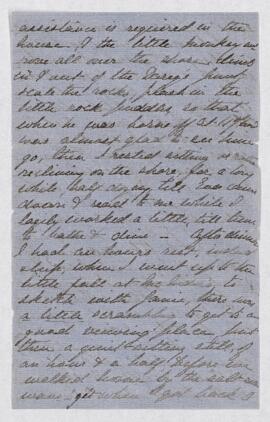 assistance is required in the
house. & the little monkey
rose all over the shore
in & out of the
scale the rocks, splash in the
little rock puddles, so that
when he was borne off at
were almost glad to see him
go, then I rested sitting or
reclining on the shore, for a long
while half dozing till
down & read to me while I
lazily worked a little till time
to bathe & dine - After dinner
I had an hour's rest, indeed
sleep, when I went up to the
little fall at to
sketch with Jamie, there was
a little scrambling to get to a
good viewing place but
then a quiet sitting still, of
an hour & a half before we
walked home by the
yet when I got back I